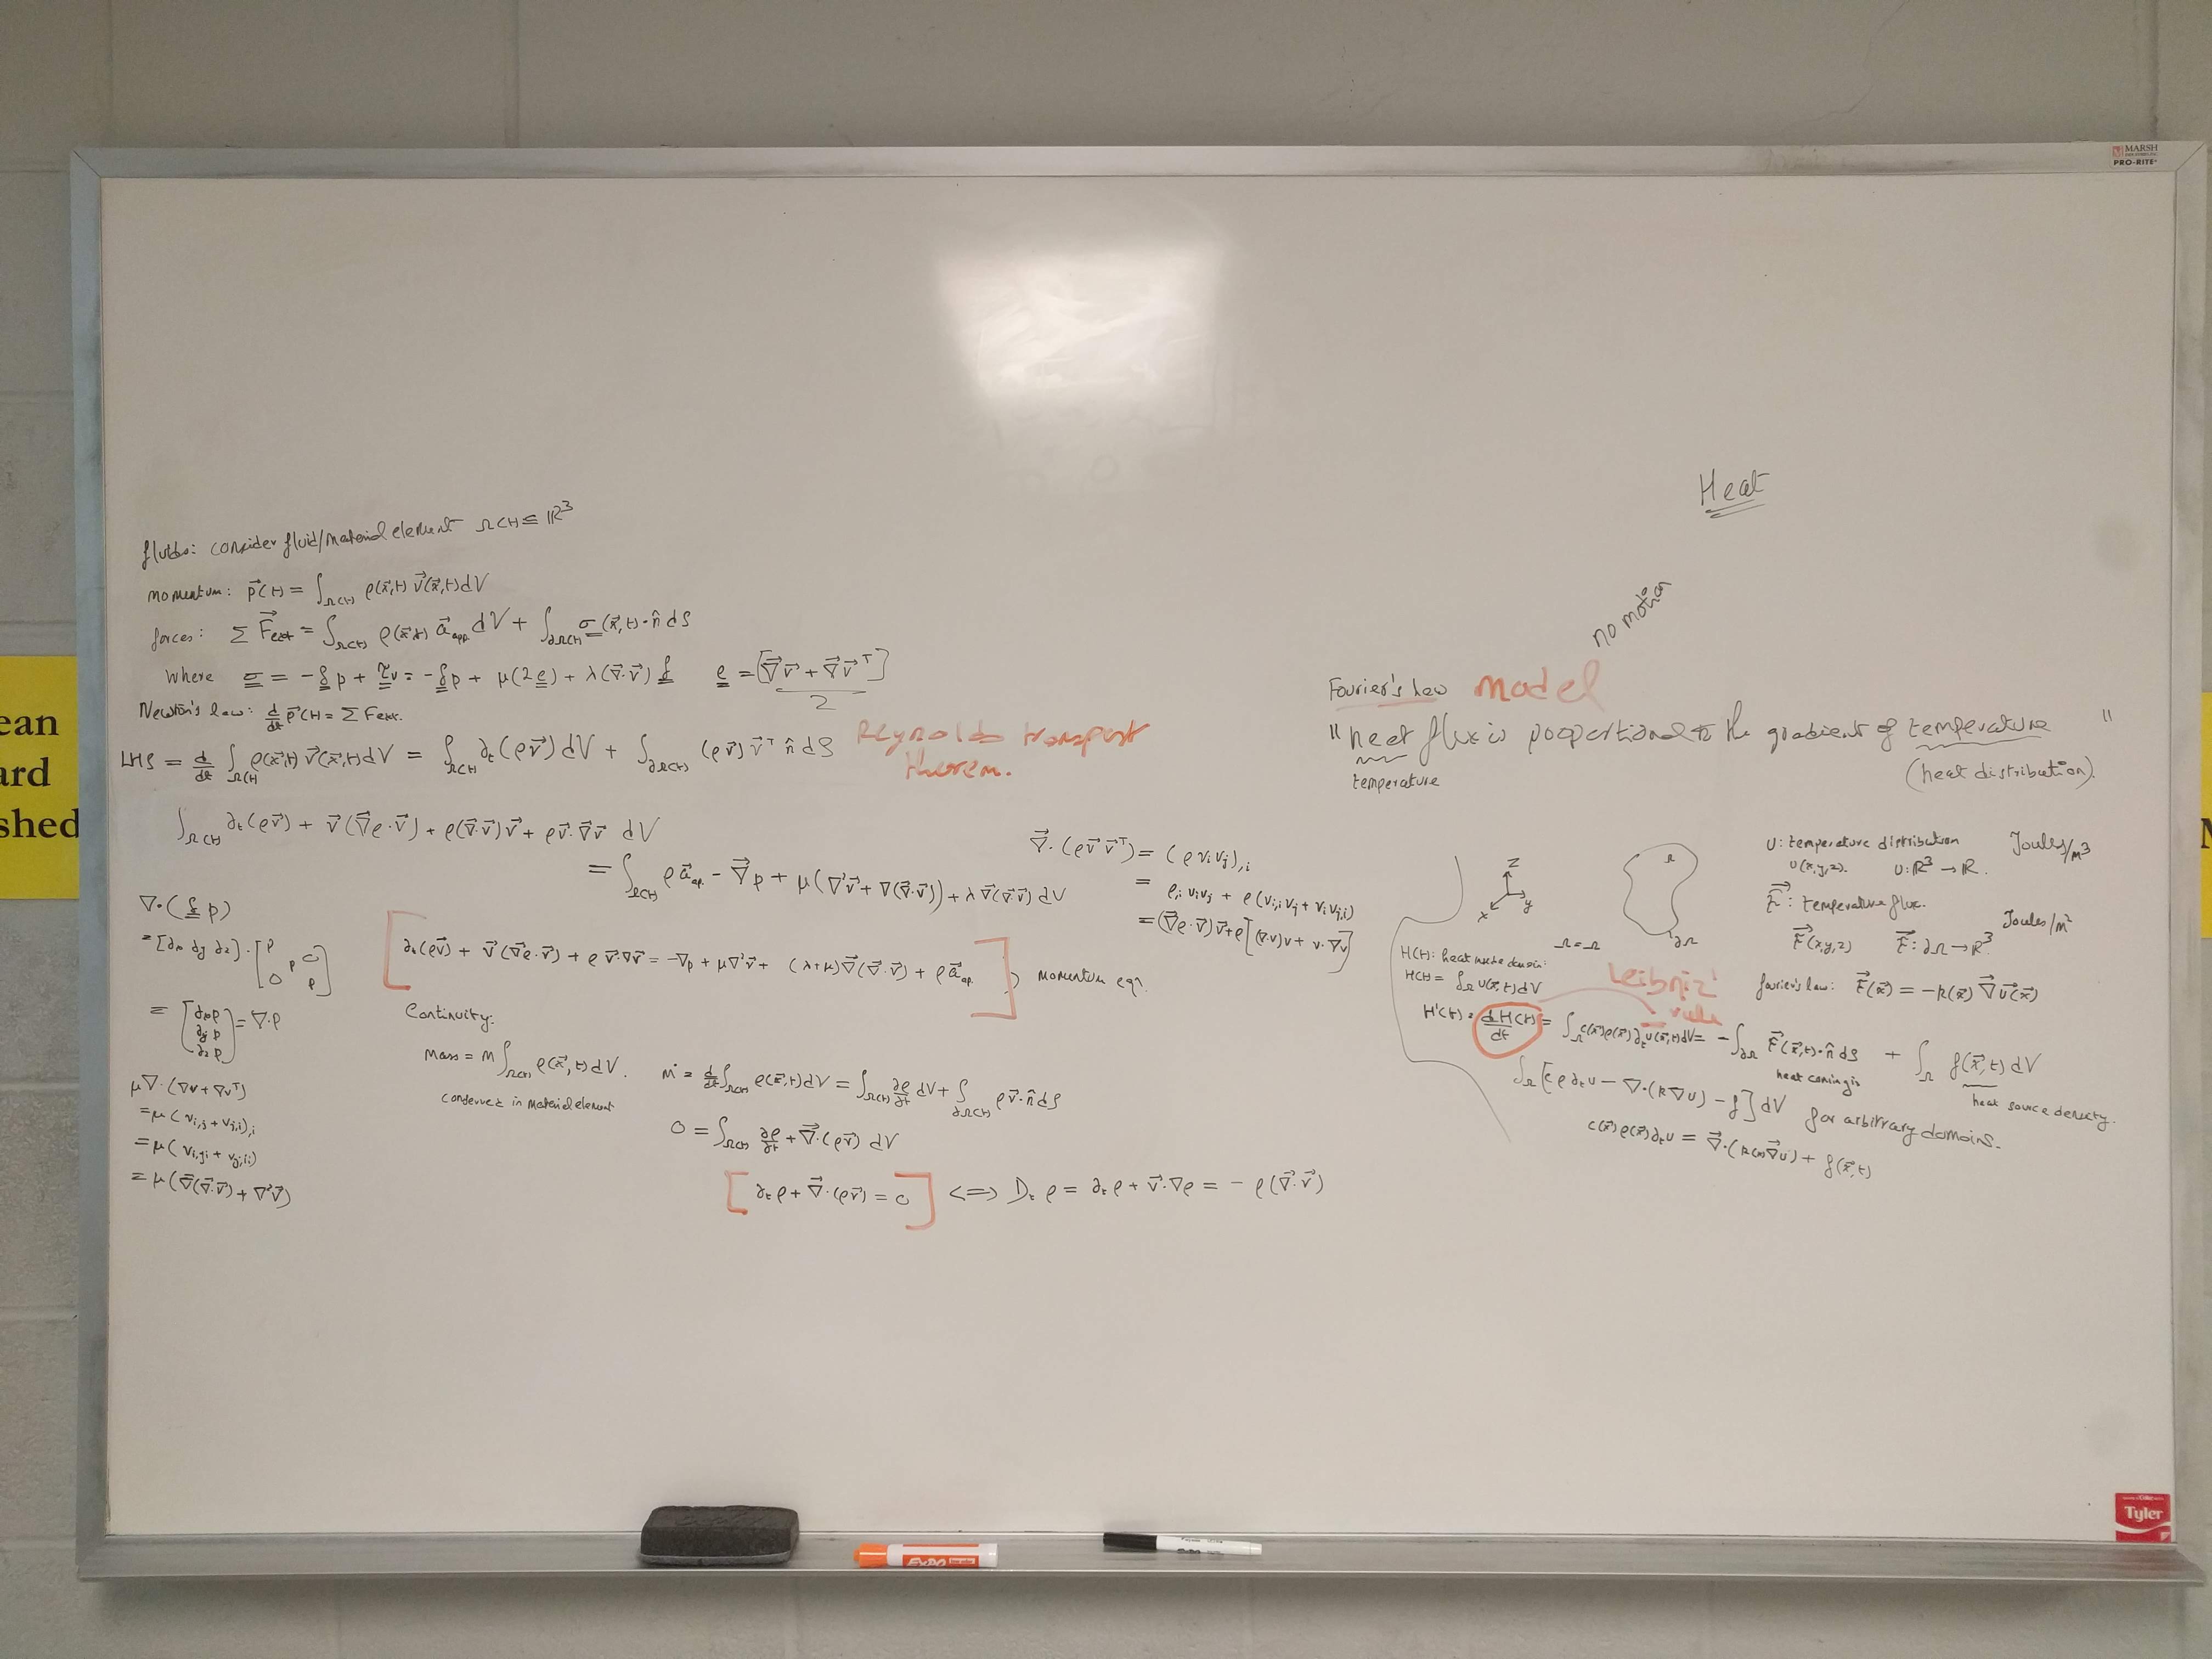 MARSH
PRO-RITE
Heat
fluids: consider fluid/material element Ω(t) ⊆ ℝ³
momentum: p⃗(t) = ∫_Ω(t) ρ(x⃗,t) v⃗(x⃗,t) dV
forces: Σ F⃗ext = ∫_Ω(t) ρ(x⃗,t) a⃗app. dV + ∫_∂Ω(t) σ(x⃗,t)·n̂ dS
where σ = -δp + τv = -δp + μ(2e) + λ(∇⃗·v⃗)δ   e = [∇⃗v⃗ + ∇⃗v⃗ᵀ]/2
Newton's law: d/dt p⃗(t) = Σ Fext.
LHS = d/dt ∫_Ω(t) ρ(x⃗,t) v⃗(x⃗,t) dV = ∫_Ω(t) ∂t(ρv⃗) dV + ∫_∂Ω(t) (ρv⃗) v⃗ᵀ n̂ dS
Reynolds transport
theorem.
∫_Ω(t) ∂t(ρv⃗) + v⃗(∇⃗ρ·v⃗) + ρ(∇⃗·v⃗)v⃗ + ρv⃗·∇⃗v⃗ dV
= ∫_Ω(t) ρa⃗ap. - ∇⃗p + μ(∇²v⃗ + ∇(∇⃗·v⃗)) + λ∇⃗(∇⃗·v⃗) dV
∇⃗·(ρv⃗v⃗ᵀ) = (ρvivj),i
= ρ,i vivj + ρ(vi,i vj + vi vj,i)
= (∇⃗ρ·v⃗)v⃗ + ρ[(∇·v)v + v·∇v]
∇·(δp)
= [∂x ∂y ∂z]·[p p p 0 0]
= [∂xp ∂yp ∂zp] = ∇·p
μ∇·(∇v + ∇vᵀ)
= μ(vi,j + vj,i),i
= μ(vi,ji + vj,ii)
= μ(∇⃗(∇⃗·v⃗) + ∇²v⃗)
[∂t(ρv⃗) + v⃗(∇⃗ρ·v⃗) + ρv⃗·∇v⃗ = -∇p + μ∇²v⃗ + (λ+μ)∇⃗(∇⃗·v⃗) + ρa⃗ap.] momentum eqn.
Continuity:
mass = m ∫_Ω(t) ρ(x⃗,t) dV.
conserved in material element
ṁ = d/dt ∫_Ω(t) ρ(x⃗,t) dV = ∫_Ω(t) ∂ρ/∂t dV + ∫_∂Ω(t) ρv⃗·n̂ dS
0 = ∫_Ω(t) ∂ρ/∂t + ∇⃗·(ρv⃗) dV
[∂tρ + ∇⃗·(ρv⃗) = 0] <=> Dtρ = ∂tρ + v⃗·∇ρ = -ρ(∇⃗·v⃗)
no motion
Fourier's Law model
"heat flux is proportional to the gradient of temperature"
temperature
(heat distribution).
z
x
y
Ω
∂Ω
Ω = Ω
U: temperature distribution Joules/m³
U(x,y,z). U: ℝ³ → ℝ.
F⃗: temperature flux. Joules/m²
F⃗(x,y,z) F⃗: ∂Ω → ℝ³
fourier's law: F⃗(x⃗) = -k(x⃗) ∇⃗u(x⃗)
H(t): heat inside domain:
H(t) = ∫_Ω u(x⃗,t) dV
Leibniz'
rule
H'(t) = dH(t)/dt = ∫_Ω c(x⃗)ρ(x⃗)∂tu(x⃗,t) dV = -∫_∂Ω F⃗(x⃗,t)·n̂ dS + ∫_Ω f(x⃗,t) dV
heat coming in
heat source density.
∫_Ω [cρ∂tu - ∇·(k∇u) - f] dV for arbitrary domains.
c(x⃗)ρ(x⃗)∂tu = ∇⃗·(k(x)∇⃗u) + f(x⃗,t)
ean
ard
shed
EXPO
Tyler